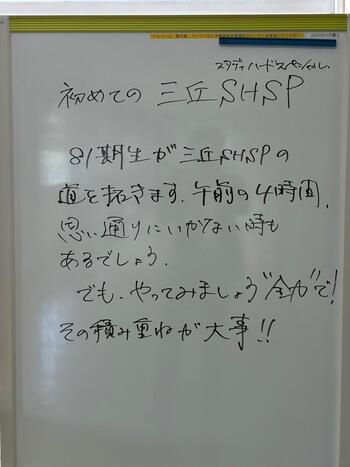 スタディハードスペシャル
初めての 三丘SHSP
81期生が三丘SHSPの
道を拓きます。午前の4時間、
思い通りにいかない時も
あるでしょう。
でも、やってみましょう"全力"で!
その積み重ねが大事!!